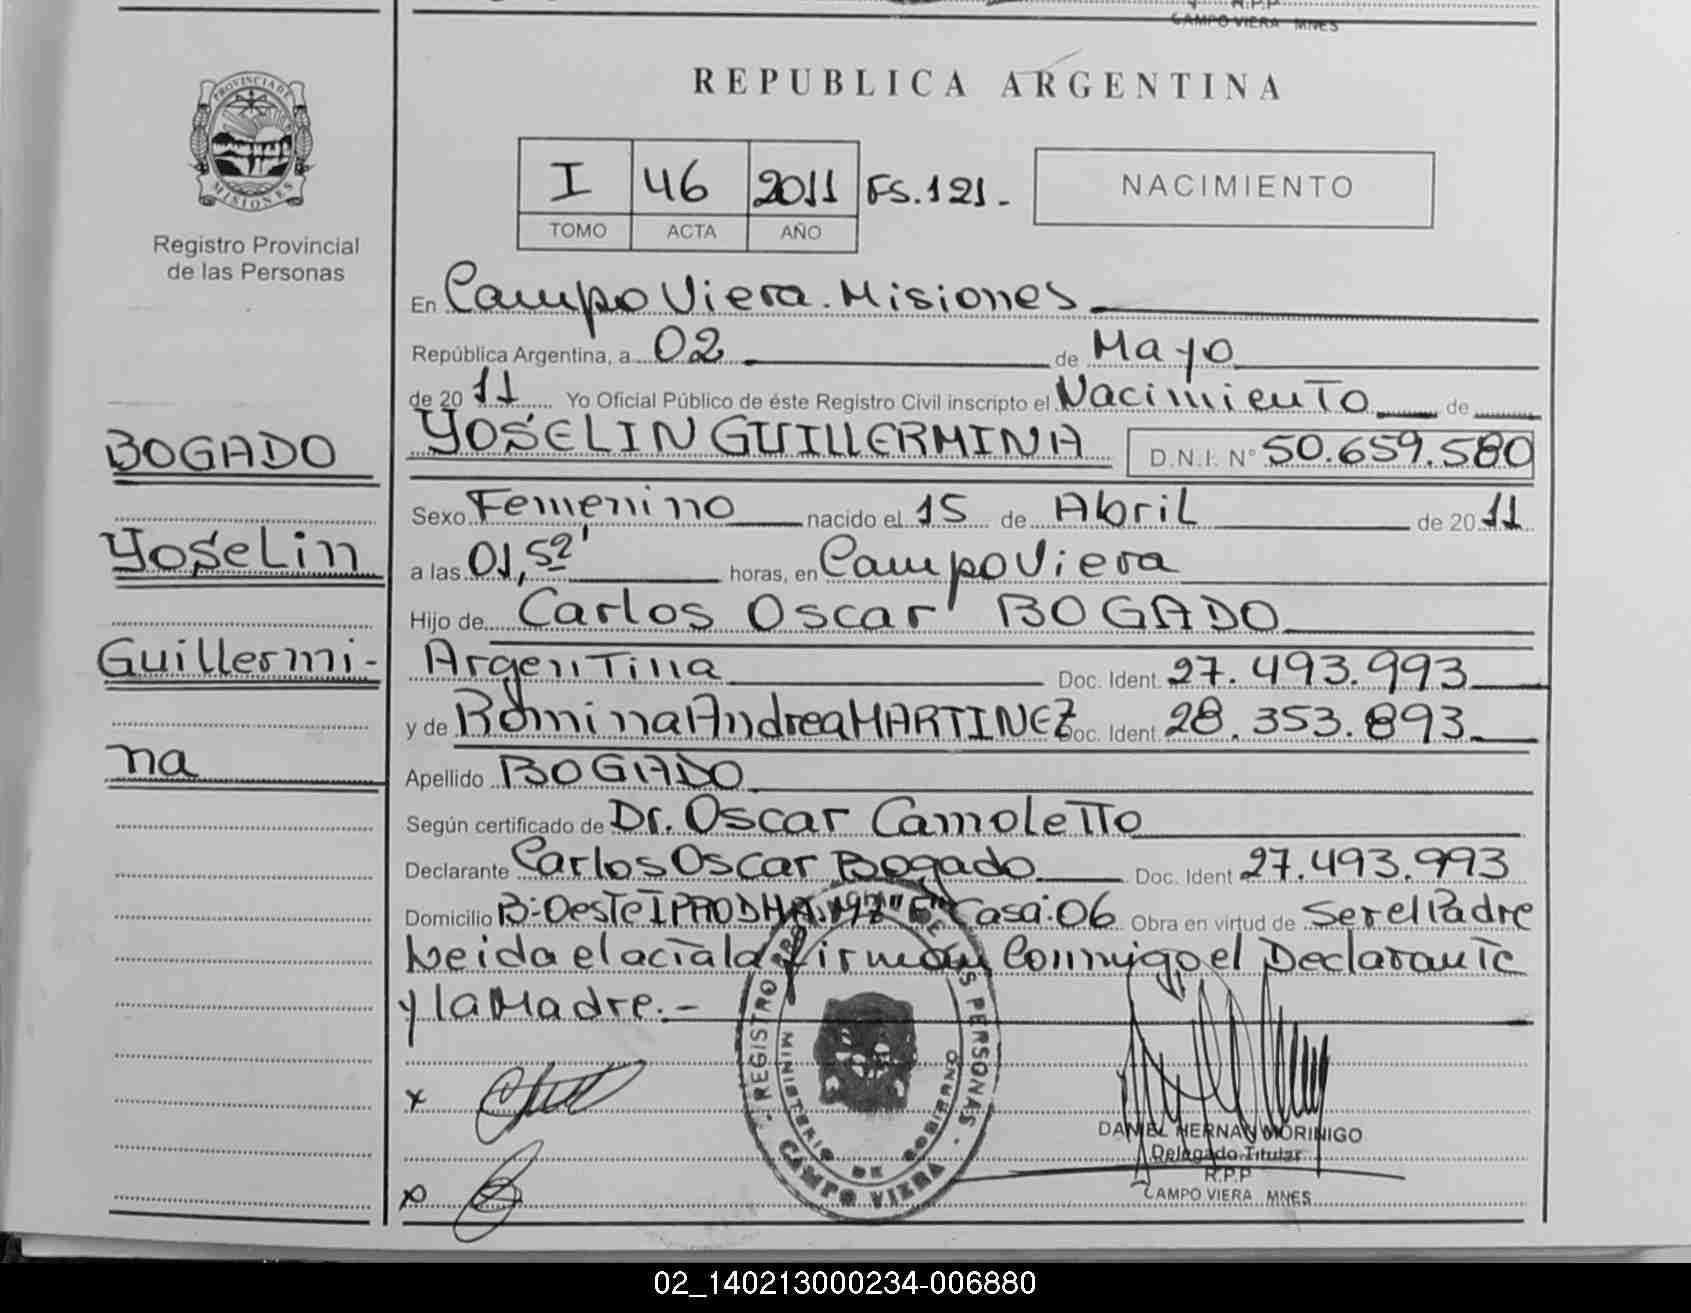 R.P.P
CAMPO VIERA MNES
PROVINCIA DE
MISIONES
Registro Provincial
de las Personas
BOGADO
Yoselin
Guillermi-
na
REPUBLICA ARGENTINA
I 46 2011 FS.121.-
TOMO ACTA AÑO
NACIMIENTO
En Campo Viera. Misiones
República Argentina, a 02 de Mayo
de 2011 Yo Oficial Público de éste Registro Civil inscripto el Nacimiento de
YOSELIN GUILLERMINA D.N.I. Nº 50.659.580
Sexo Femenino nacido el 15 de Abril de 2011
a las 01,52' horas, en Campo Viera
Hijo de Carlos Oscar BOGADO
Argentina Doc. Ident. 27.493.993
y de Romina Andrea MARTINEZ Doc. Ident. 28.353.893
Apellido BOGADO
Según certificado de Dr. Oscar Camoletto
Declarante Carlos Oscar Bogado Doc. Ident 27.493.993
Domicilio B:Oeste IPRODHA. Casa:06 Obra en virtud de Ser el Padre
Leida el acta la firman Conmigo el Declarante
y la Madre.-
x
x
REGISTRO DE LAS PERSONAS
MINISTERIO DE GOBIERNO
CAMPO VIERA
DANIEL HERNAN MORINIGO
Delegado Titular
R.P.P
CAMPO VIERA MNES
02_140213000234-006880